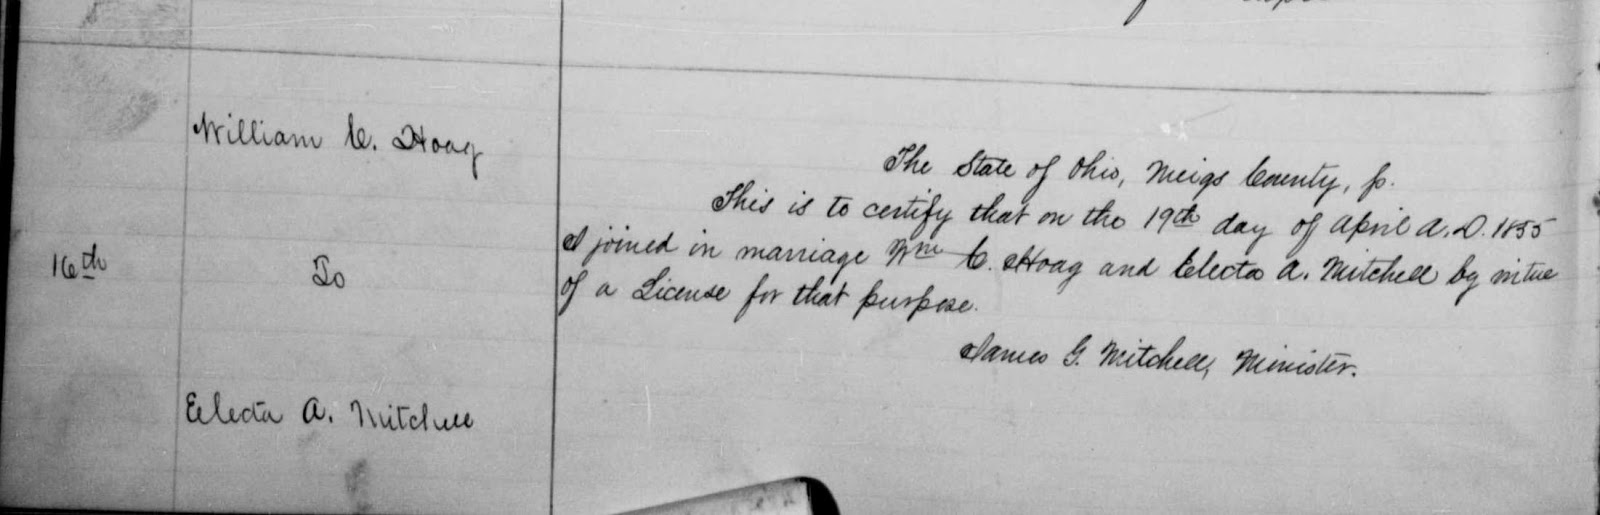 William C. Hoag
The State of Ohio, Meigs County, ss.
This is to certify that on the 19th day of April A.D. 1855
I joined in marriage Wm C. Hoag and Electa A. Mitchell by virtue
16th
To
of a License for that purpose.
James G. Mitchell, Minister.
Electa A. Mitchell